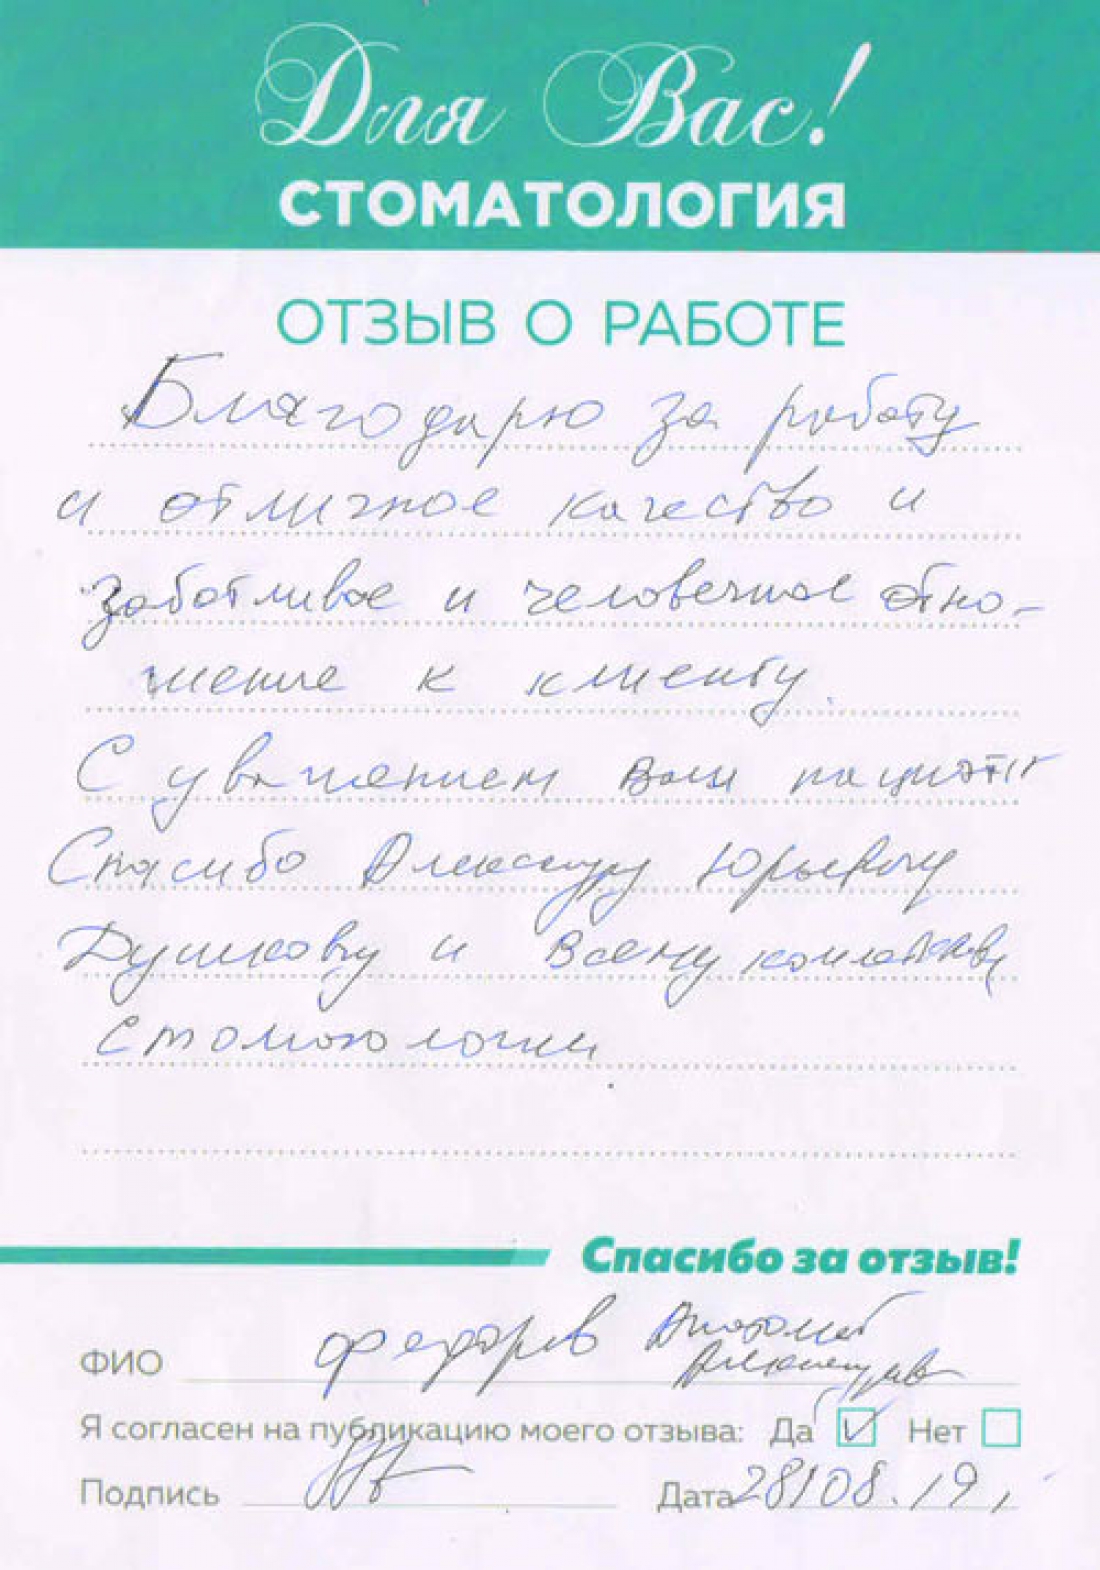 Для Вас!
СТОМАТОЛОГИЯ
ОТЗЫВ О РАБОТЕ
Благодарю за работу
и отличное качество и
заботливое и человечное отно-
шение к клиенту.
С уважением Ваш пациент
Спасибо Александру Юрьевичу
Душкову и всему коллективу
стоматологии
Спасибо за отзыв!
ФИО Федоров Анатолий
Александров
Я согласен на публикацию моего отзыва: Да Нет
Подпись Дата 28/08.19,